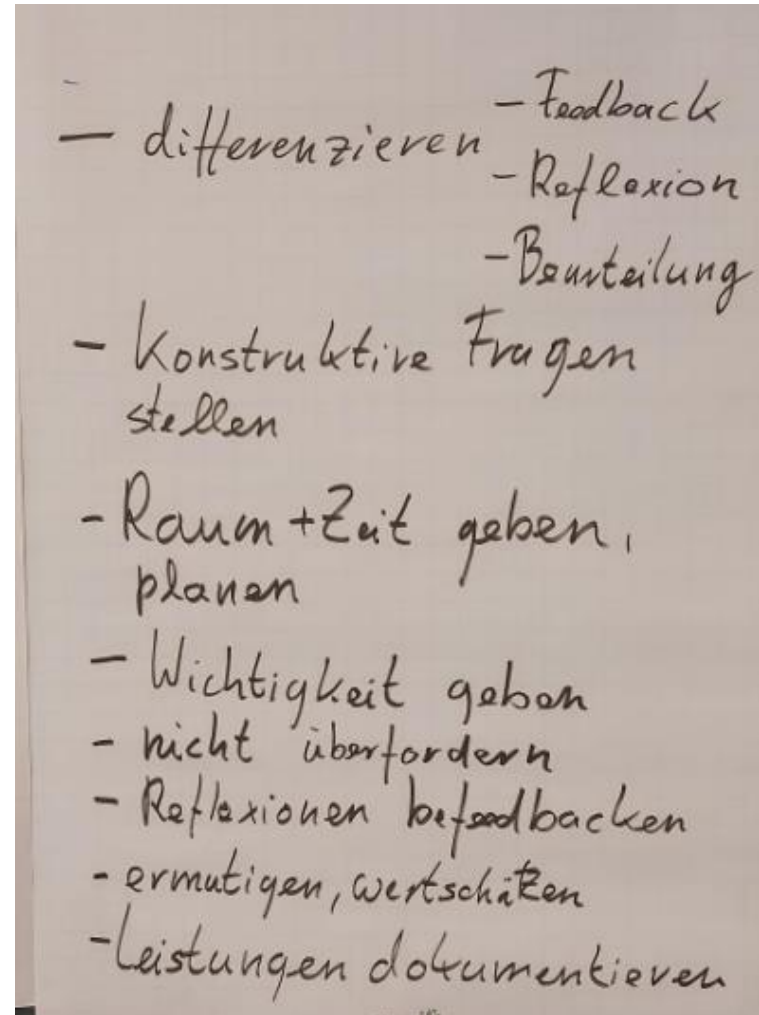 - differenzieren
- Feedback
- Reflexion
- Beurteilung
- Konstruktive Fragen
stellen
- Raum + Zeit geben,
planen
- Wichtigkeit geben
- nicht überfordern
- Reflexionen befeedbacken
- ermutigen, wertschätzen
- Leistungen dokumentieren